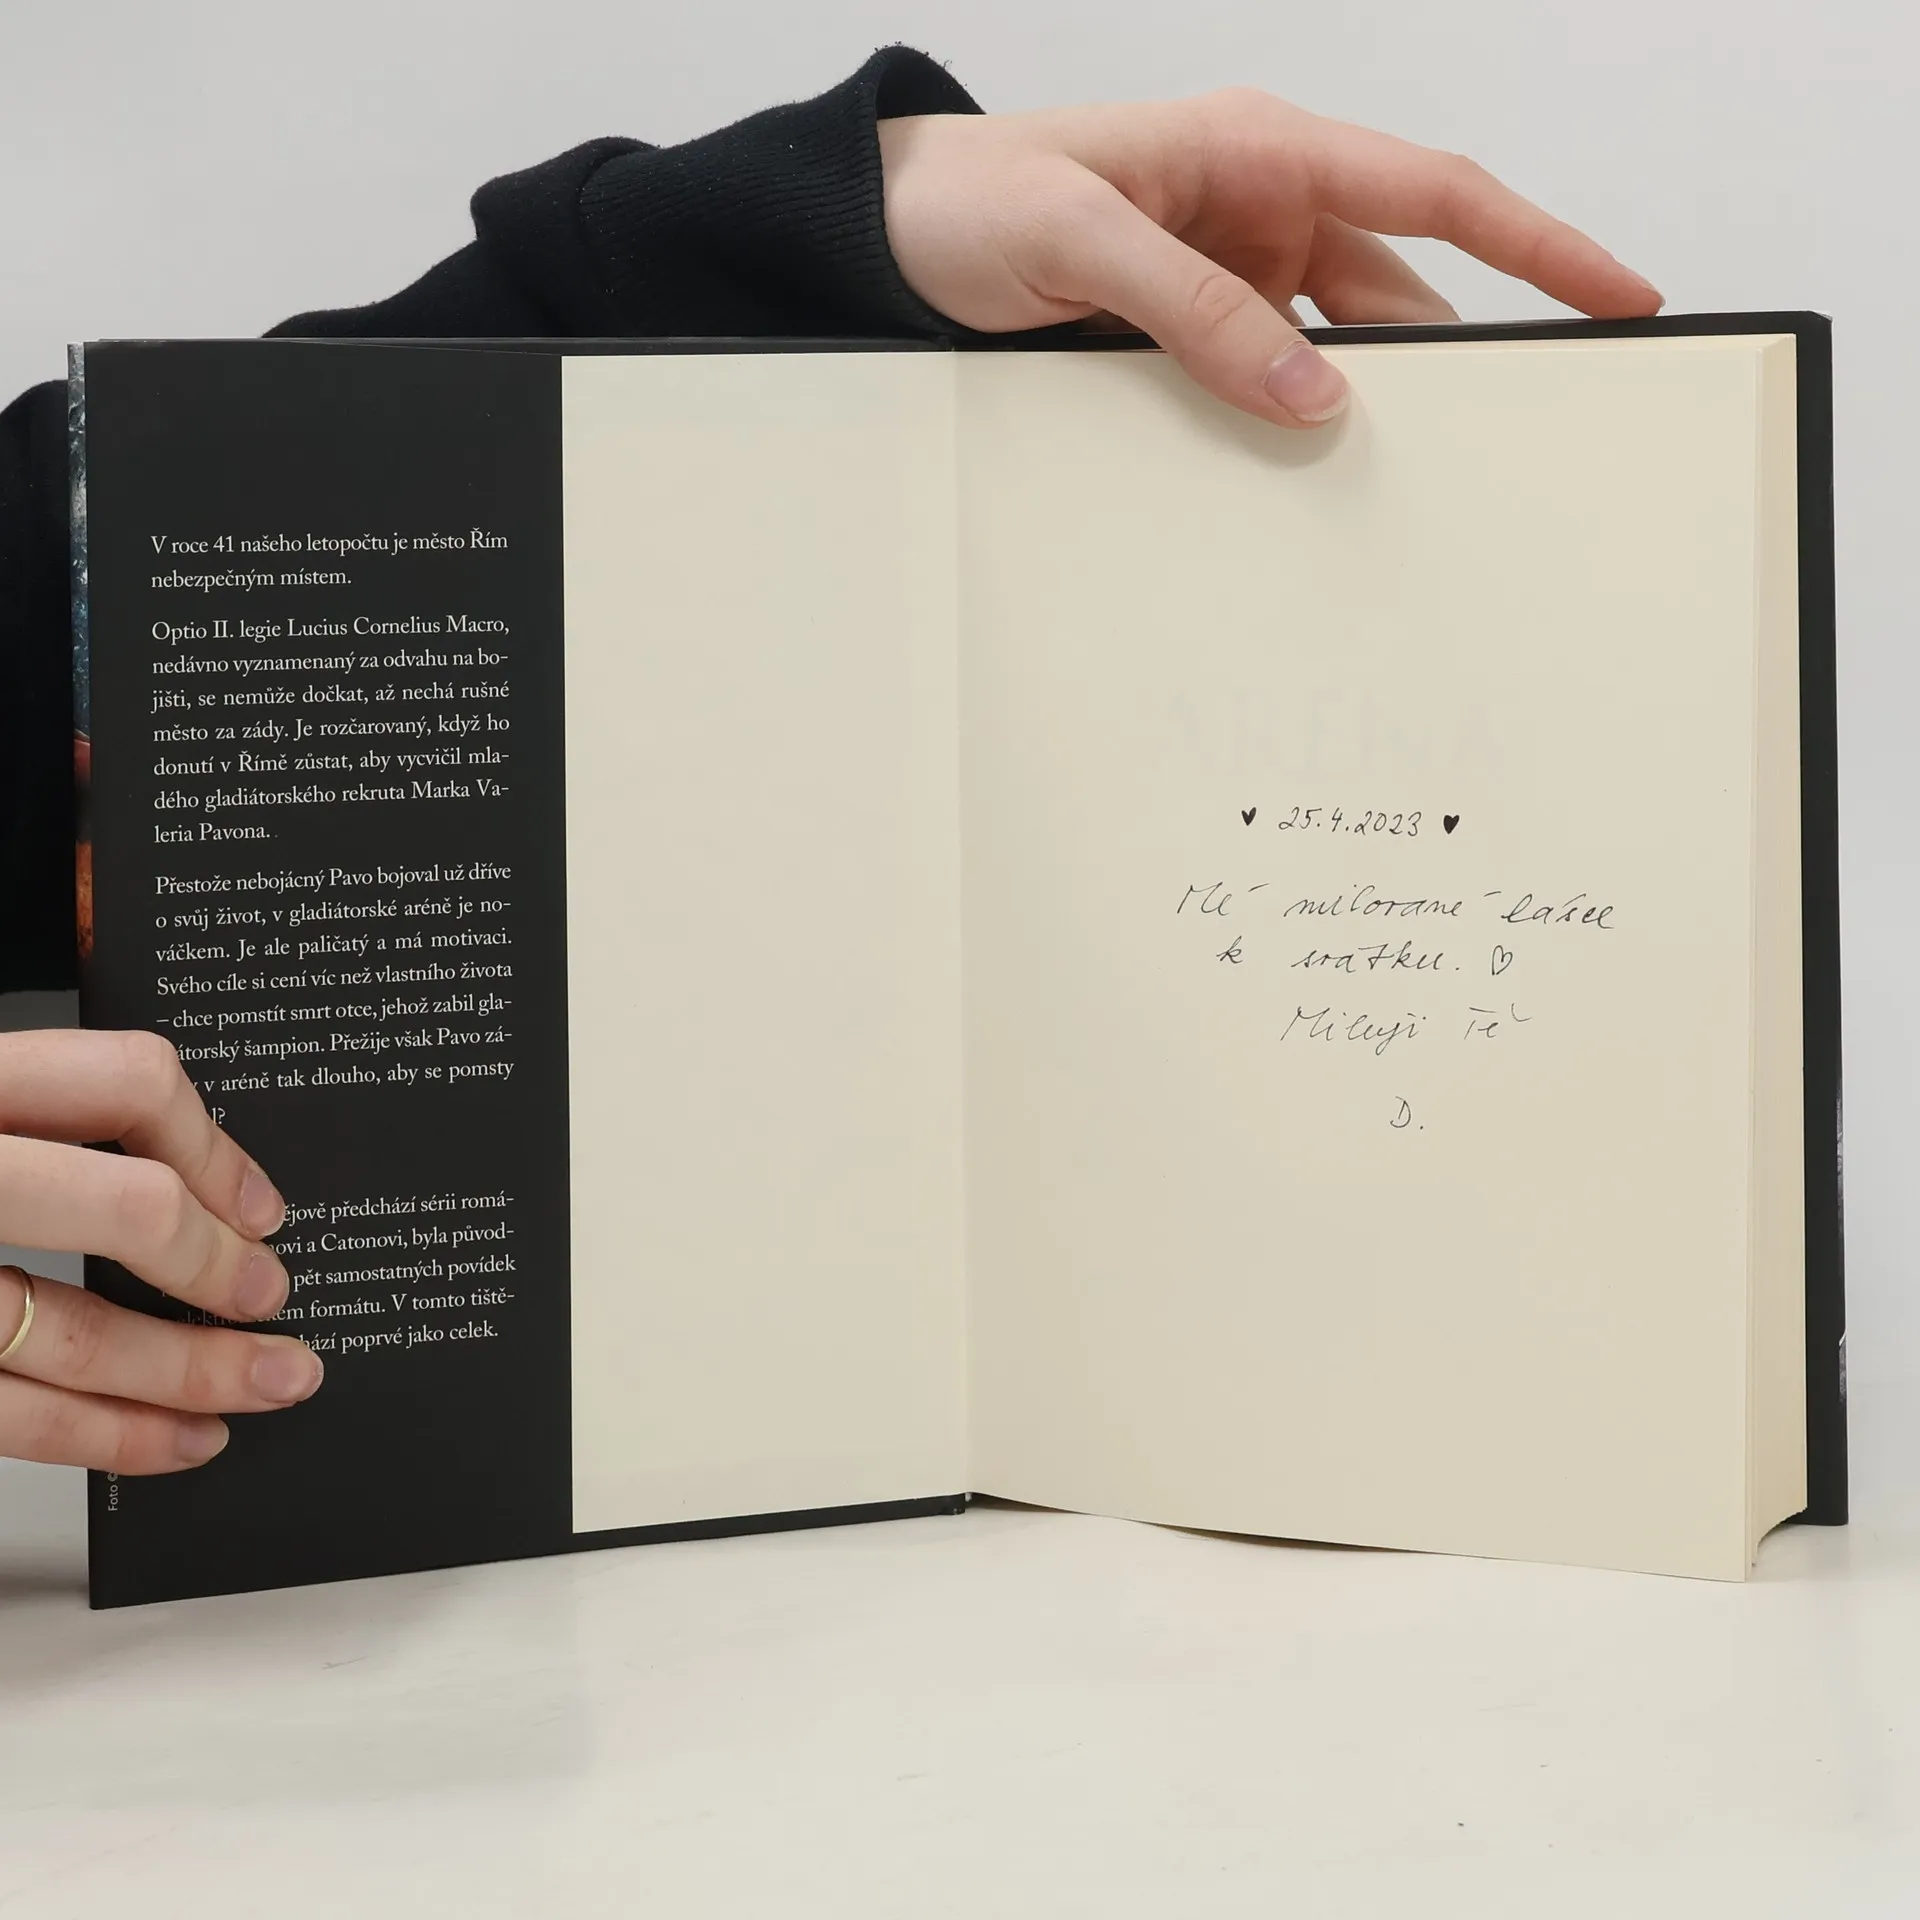 V roce 41 našeho letopočtu je město Řím
nebezpečným místem.
Optio II. legie Lucius Cornelius Macro,
nedávno vyznamenaný za odvahu na bo-
jišti, se nemůže dočkat, až nechá rušné
město za zády. Je rozčarovaný, když ho
donutí v Římě zůstat, aby vycvičil mla-
dého gladiátorského rekruta Marka Va-
leria Pavona.
Přestože nebojácný Pavo bojoval už dříve
o svůj život, v gladiátorské aréně je no-
váčkem. Je ale paličatý a má motivaci.
Svého cíle si cení víc než vlastního života
– chce pomstít smrt otce, jehož zabil gla-
átorský šampion. Přežije však Pavo zá-
v aréně tak dlouho, aby se pomsty
l?
ějově předchází sérii romá-
novi a Catonovi, byla původ-
pět samostatných povídek
ém formátu. V tomto tiště-
hází poprvé jako celek.
Foto ©
♥ 25.4.2023 ♥
Mé milované lásce
k svátku. ♡
Miluji Tě
D.